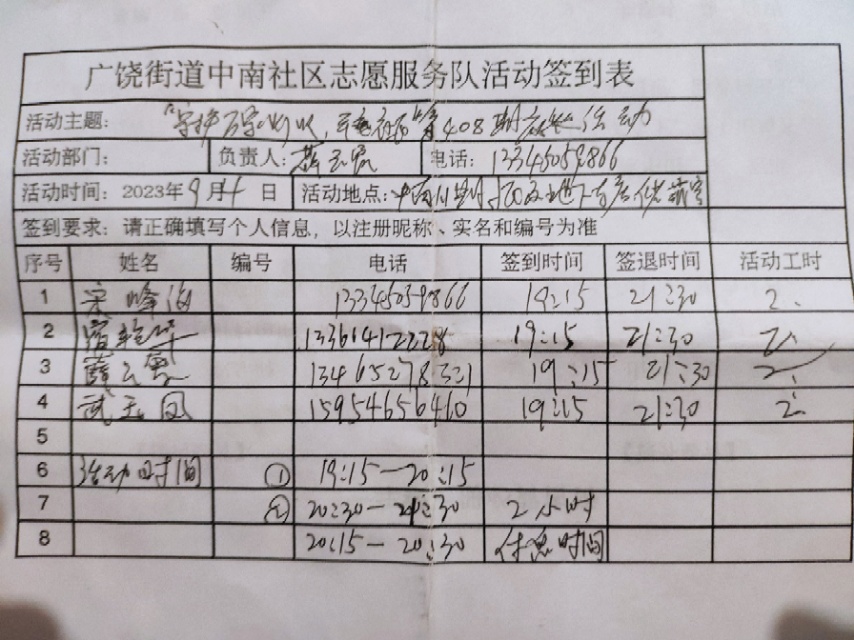 广饶街道中南社区志愿服务队活动签到表
活动主题： 408期 活动
活动部门： 负责人： 电话：13345059866
活动时间：2023年9月4日 活动地点：
签到要求：请正确填写个人信息，以注册昵称、实名和编号为准
序号 姓名 编号 电话 签到时间 签退时间 活动工时
1 宋峰海 13345059866 19:15 21:30 2.
2 13361412228 19:15 21:30 2.
3 薛云凤 13465278321 19:15 21:30 2.
4 武玉凤 15954656460 19:15 21:30 2.
5
6 活动时间 ① 19:15—20:15
7 ② 20:30—21:30 2小时
8 20:15—20:30 休息时间